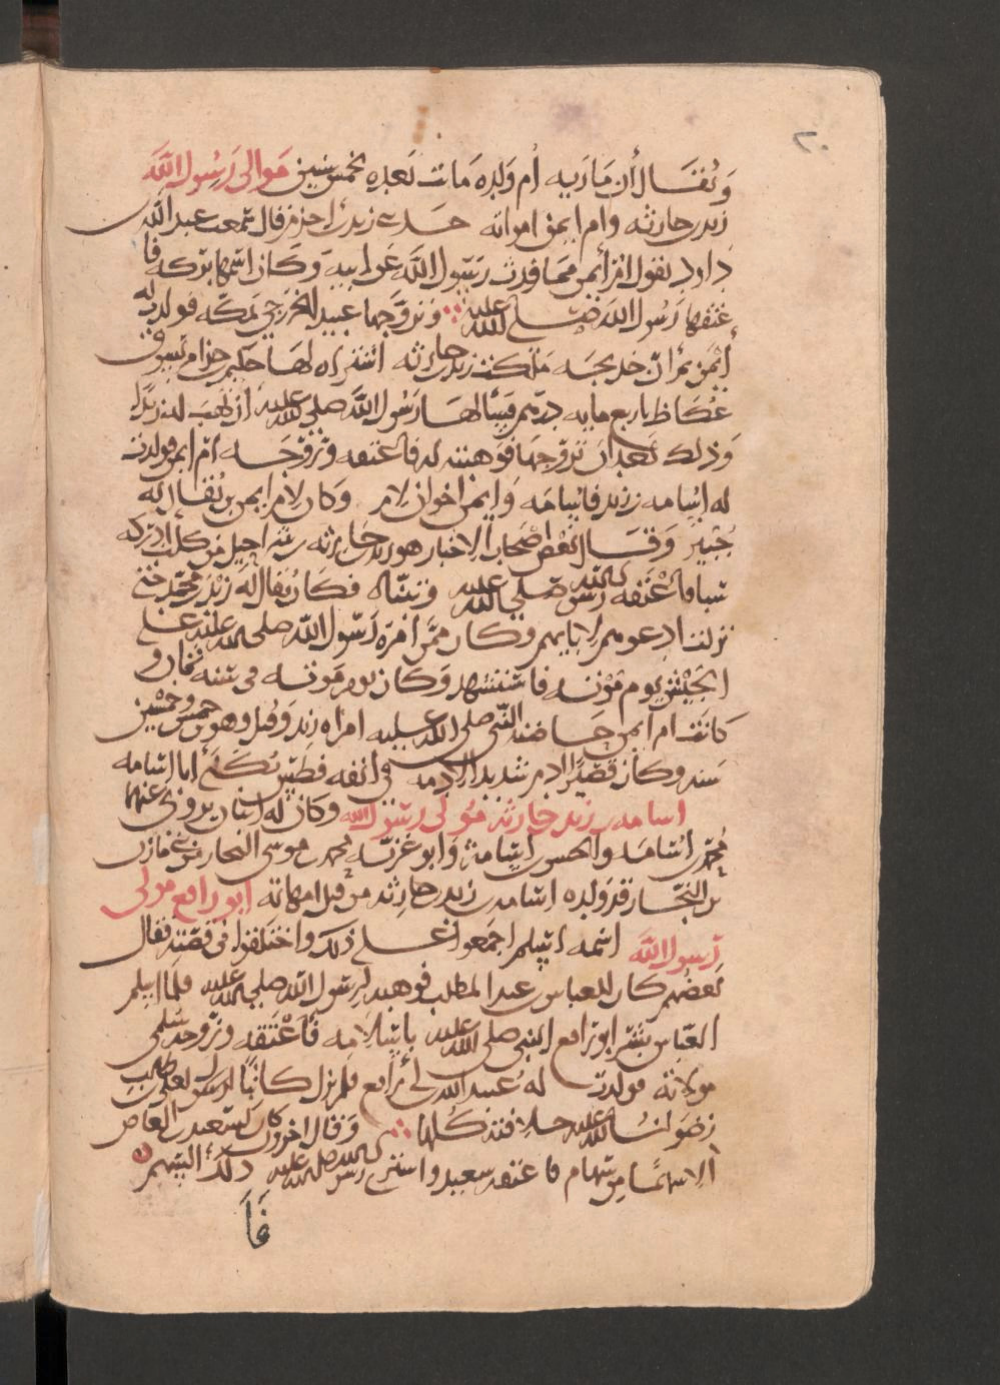 ٢٠
ويقال أن مارية أم ولده ماتت بعده بخمس سنين موالى رسول الله
زيد بن حارثه وام ايمن امراته حدثني زيد بن احزم قال سمعت عبد الله بن
داود يقول ام ايمن مما ورث رسول الله عن ابيه وكان اسمها بركه فا
عتقها رسول الله صلى الله عليه وتزوجها عبيد الخزرجي بمكه فولدت له
أيمن ثم ان خديجه ملكت زيد بن حارثه اشتراه لها حكيم بن حزام بسوق
عكاظ باربع مايه درهم فسألها رسول الله صلى الله عليه ان تهب له زيدا
وذلك بعد ان تزوجها فوهبته له فاعتقه وزوجه ام ايمن فولدت
له اسامه بن زيد فاسامه وايمن اخوان لام وكان لام ايمن بن يقال له
جبير وقال بعض اصحاب الاخبار هو زيد بن حارثه بن شراحيل من كلب ادركه
سبا فاعتقه رسول الله صلى الله عليه وتبناه فكان يقال له زيد بن محمد حتى
نزلت ادعوهم لابايهم وكان ممن امره رسول الله صلى الله عليه على
الجيش يوم موته فاستشهد وكان يوم موته فى سنه ثمان و
كانت ام ايمن حاضنه النبي صلى الله عليه امراه زيد وقتل وهو بن خمس وخمسين
سنه وكان قصيرا ادم شديد الادمه في انفه فطس يكنى ابا اسامه
اسامه بن زيد بن حارثه مولى رسول الله وكان له ابنان يروى عنهما
محمد بن اسامه والحسن بن اسامه وابو غزيه محمد بن موسى النجار من بني مازن
بن النجار قد ولده اسامه بن زيد بن حارثه من قبل امهاته ابو رافع مولى
رسول الله اسمه اسلم اجمعوا على ذلك واختلفوا فى قصته فقال
بعضهم كان للعباس بن عبد المطلب فوهبه لرسول الله صلى الله عليه فلما اسلم
العباس بشر ابو رافع النبي صلى الله عليه باسلامه فاعتقه وزوجه سلمى
مولاته فولدت له عبيد الله بن أبي رافع فلم يزل كاتبا لعلي بن طالب
رضوان الله عليه خلافته كلها وقال اخرون كان لسعيد بن العاص
الا سهما من سهام فاعتقه سعيد واشترى رسول الله صلى الله عليه ذلك السهم
فا